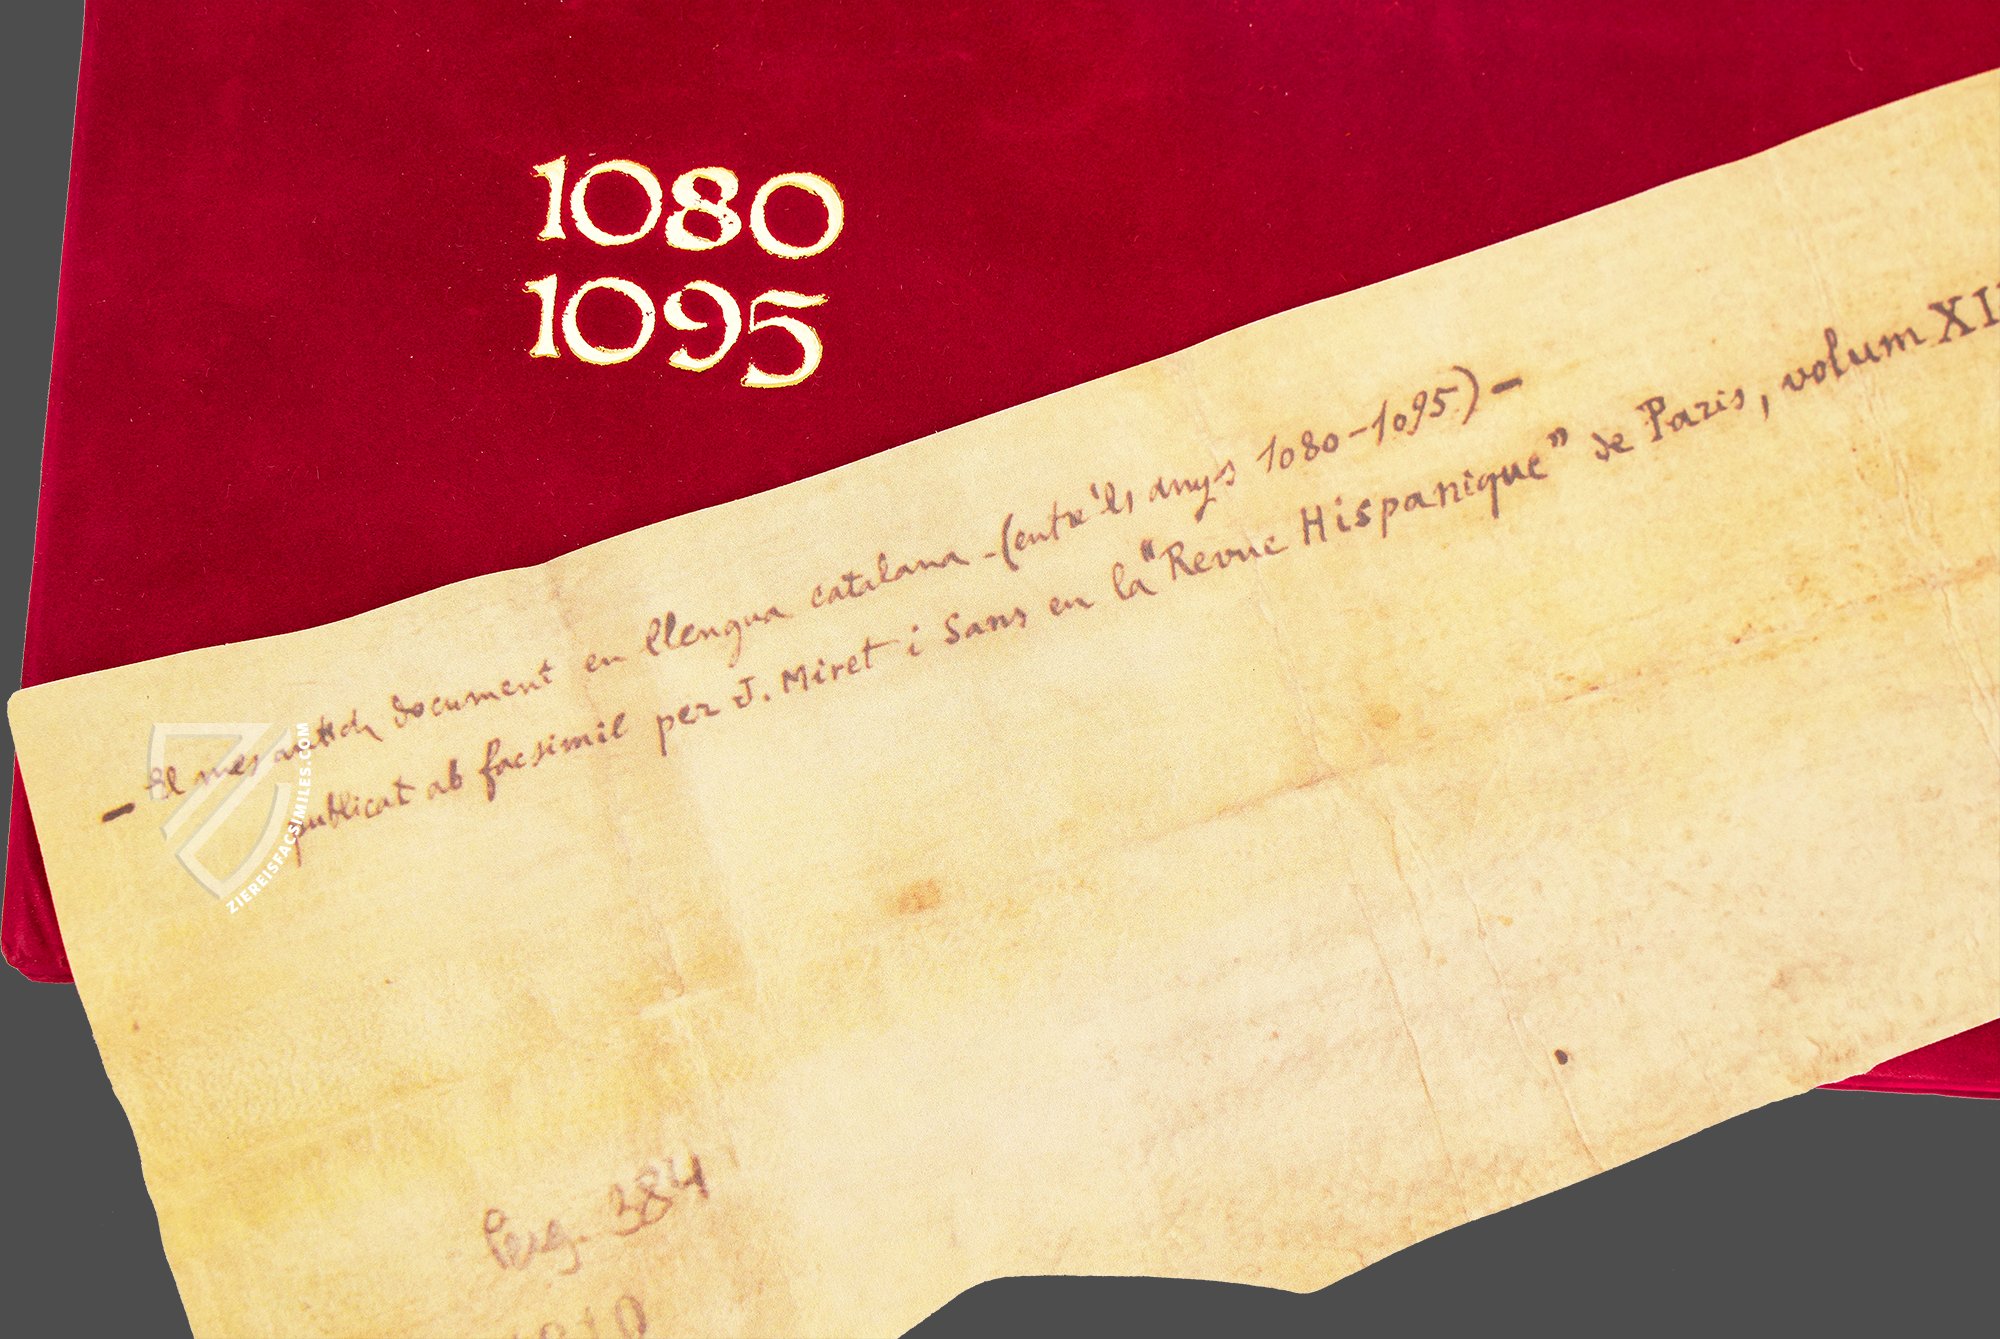 1080
1095
– El mes antich document en llengua catalana – (entre'ls anys 1080-1095) –
publicat ab facsimil per J. Miret i Sans en la "Revue Hispanique" de Paris, volum
Perg. 384
ZIEREISFACSIMILES.COM